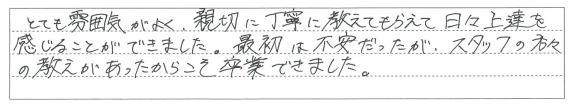 とても雰囲気がよく、親切に丁寧に教えてもらえて日々上達を
感じることができました。最初は不安だったが、スタッフの方々
の教えがあったからこそ卒業できました。